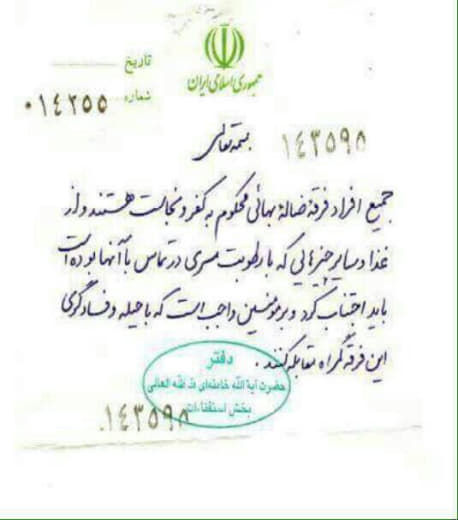 جمهوری اسلامی ایران
تاریخ
شماره ۰۱۴۲۵۵
بسمه تعالی ۱۴۳۵۹۸
جمیع افراد فرقهٔ ضالهٔ بهائی محکوم به کفر و نجاست هستند و از
غذا و سایر چیزهایی که با رطوبت مسری در تماس با آنها بوده است
باید اجتناب کرد و بر مومنین واجب است که با حیله و فسادگری
این فرقه گمراه مقابله کنند.
دفتر
حضرت آیة الله خامنه‌ای مد ظله العالی
بخش استفتاءات
۱۴۳۵۹۸